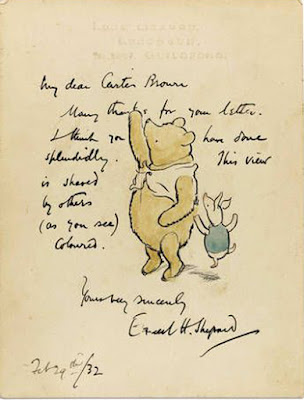 My dear Carter Brown
Many thanks for your letter.
I think you have done
splendidly. This view
is shared
by others
(as you see)
Coloured.
Yours very sincerely
Ernest H. Shepard
Feb 29th/32